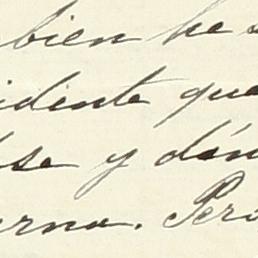 bien he
idente que
se y dán
erno. Pero